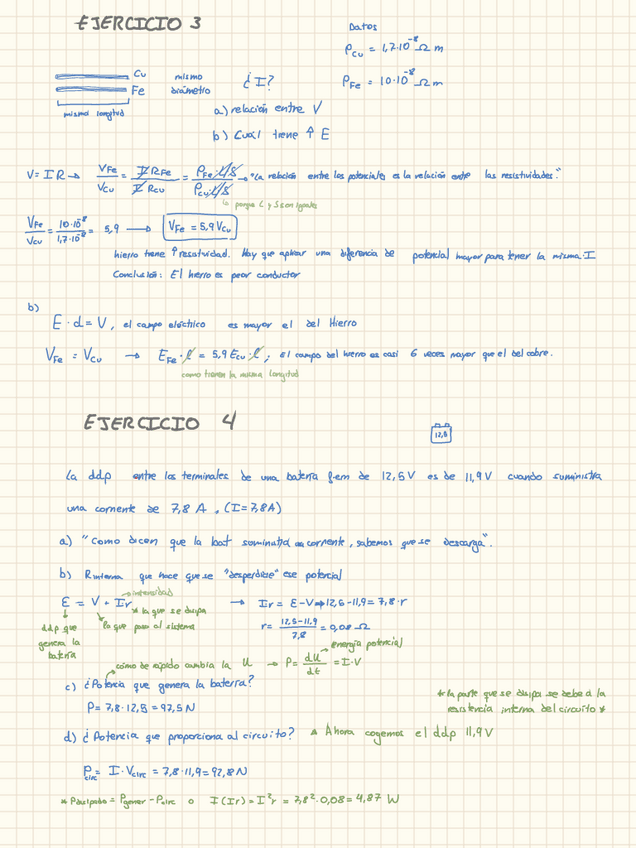 EJERCICIO 3
Datos
ρCu = 1,7·10⁻⁸ Ω m
ρFe = 10·10⁻⁸ Ω m
Cu
Fe
mismo diámetro
¿I?
misma longitud
a) relación entre V
b) Cuál tiene ↑ E
V = I R → VFe/VCu = I RFe/I RCu = ρFe·L/S / ρCu·L/S → "La relación entre los potenciales es la relación entre las resistividades."
↳ porque L y S son iguales
VFe/VCu = 10·10⁻⁸/1,7·10⁻⁸ = 5,9 → VFe = 5,9 VCu
hierro tiene ↑ resistividad. Hay que aplicar una diferencia de potencial mayor para tener la misma I
Conclusión: El hierro es peor conductor
b)
E · d = V, el campo eléctrico es mayor el del Hierro
VFe = VCu → EFe · l = 5,9 ECu · l, el campo del hierro es casi 6 veces mayor que el del cobre.
como tienen la misma longitud
EJERCICIO 4
12,5
La ddp entre los terminales de una batería fem de 12,5 V es de 11,9 V cuando suministra
una corriente de 7,8 A. (I = 7,8A)
a) "Como dicen que la bat suministra corriente, sabemos que se descarga".
b) Rinterna que hace que se "desperdicie" ese potencial
intensidad
ε = V + Ir → Ir = ε - V ⇒ 12,5 - 11,9 = 7,8 · r
* la que se disipa
ddp que genera la batería
la que pasa al sistema
r = 12,5-11,9/7,8 = 0,08 Ω
energía potencial
cómo de rápido cambia la U → P = dU/dt = I·V
c) ¿Potencia que genera la batería?
P = 7,8 · 12,5 = 97,5 N
* la parte que se disipa se debe a la
resistencia interna del circuito *
d) ¿Potencia que proporciona al circuito? * Ahora cogemos el ddp 11,9V
Pcirc = I · Vcirc = 7,8 · 11,9 = 92,8 N
* Pdisipada = Pgener - Pcirc o I(Ir) = I²r = 7,8² · 0,08 = 4,87 W